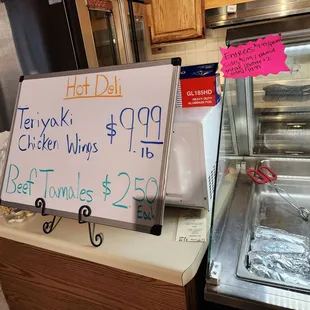 Hot Deli
Teriyaki
Chicken Wings $9.99
lb
Beef Tamales $2.50
Each
GL185HD
HEAVY DUTY